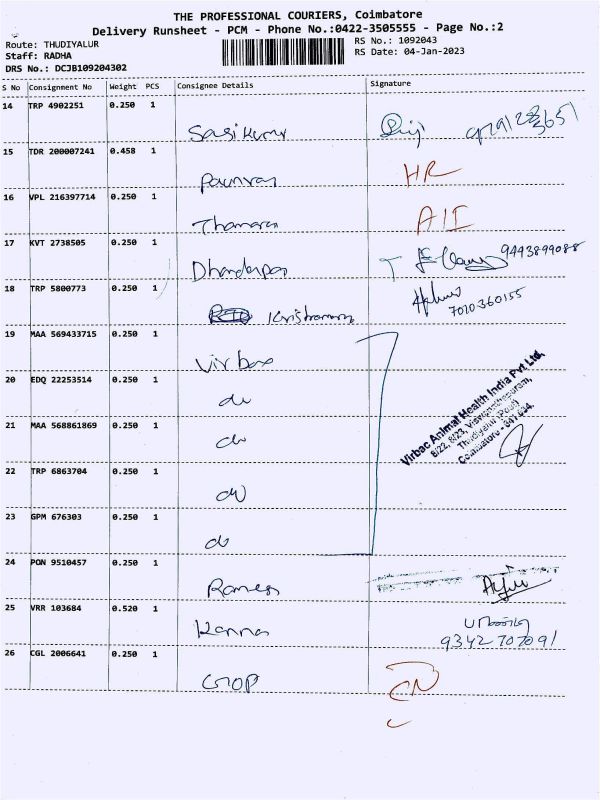 THE PROFESSIONAL COURIERS, Coimbatore
Delivery Runsheet - PCM - Phone No.:0422-3505555 - Page No.:2
Route: THUDIYALUR
RS No.: 1092043
Staff: RADHA
RS Date: 04-Jan-2023
DRS No.: DCJB109204302
S No Consignment No Weight PCS Consignee Details Signature
14 TRP 4902251 0.250 1
Sasikumar
15 TDR 200007241 0.458 1
HR
16 VPL 216397714 0.250 1
Thamarai
17 KVT 2738505 0.250 1
Dhandapani 9443899088
18 TRP 5800773 0.250 1
7010360155
19 MAA 569433715 0.250 1
Virbac
20 EDQ 22253514 0.250 1
do
21 MAA 568861869 0.250 1
do
22 TRP 6863704 0.250 1
do
23 GPM 676303 0.250 1
do
Virbac Animal Health India Pvt Ltd,
8/22, 8/23, Viswanathapuram,
Thudiyalur (Post)
Coimbatore - 641 034.
24 PON 9510457 0.250 1
Ramesh
25 VRR 103684 0.520 1
Kanna
9342707091
26 CGL 2006641 0.250 1